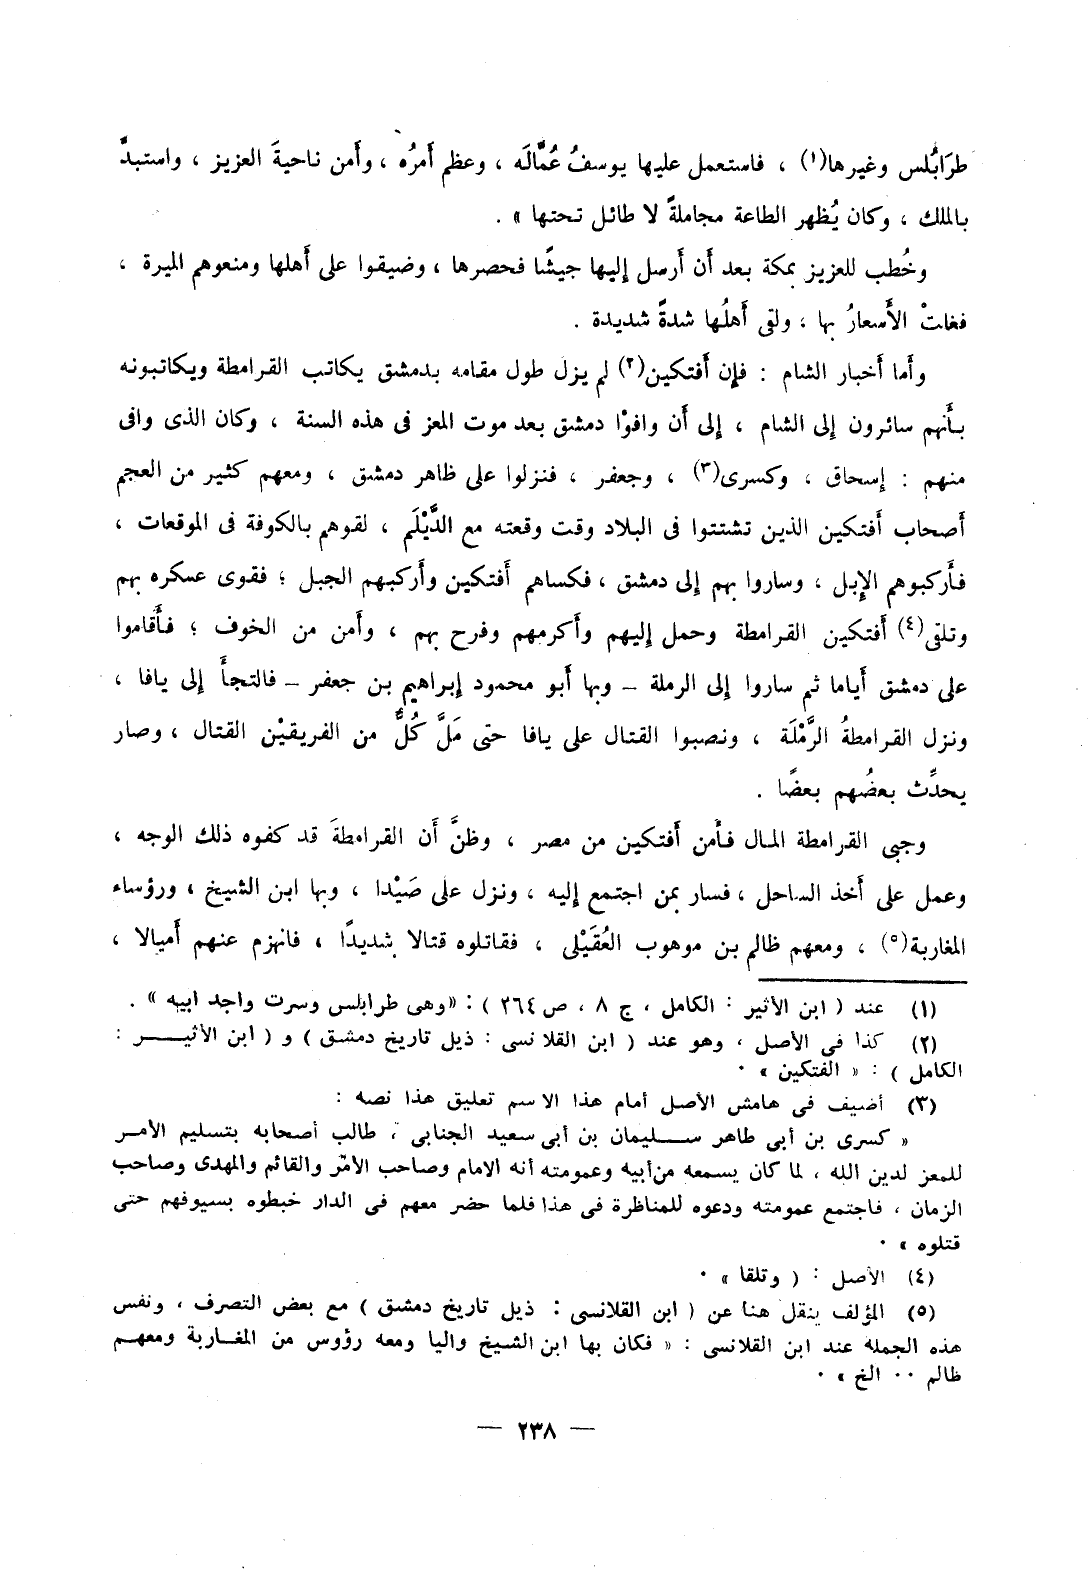 طرَابُلس وغيرها(١) ، فاستعمل عليها يوسفُ عُمَّالَه ، وعظم أَمرُه ، وأَمن ناحيةَ العزيز ، واستبدَّ
بالملك ، وكان يُظهر الطاعة مجاملةً لا طائل تحتها » .
وخُطب للعزيز بمكة بعد أَن أَرسل إليها جيشًا فحصرها ، وضيقوا على أَهلها ومنعوهم الميرة ،
فغلتْ الأَسعارُ بها ، ولقى أَهلُها شدةً شديدة .
وأَما أَخبار الشام : فإن أَفتكين(٢) لم يزل طول مقامه بدمشق يكاتب القرامطة ويكاتبونه
بأَنهم سائرون إلى الشام ، إلى أَن وافوْا دمشق بعد موت المعز فى هذه السنة ، وكان الذى وافى
منهم : إسحاق ، وكسرى(٣) ، وجعفر ، فنزلوا على ظاهر دمشق ، ومعهم كثير من العجم
أَصحاب أَفتكين الذين تشتتوا فى البلاد وقت وقعته مع الدَّيْلَم ، لقوهم بالكوفة فى الموقعات ،
فأَركبوهم الإبل ، وساروا بهم إلى دمشق ، فكساهم أَفتكين وأَركبهم الجبل ؛ فقوى عسكره بهم
وتلقى(٤) أَفتكين القرامطة وحمل إليهم وأَكرمهم وفرح بهم ، وأَمن من الخوف ؛ فأَقاموا
على دمشق أَياما ثم ساروا إلى الرملة ــ وبها أَبو محمود إبراهيم بن جعفر ــ فالتجأَ إلى يافا ،
ونزل القرامطةُ الرَّمْلَة ، ونصبوا القتال على يافا حتى مَلَّ كُلٌّ من الفريقيْن القتال ، وصار
يحدِّث بعضُهم بعضًا .
وجبى القرامطة المال فأَمن أَفتكين من مصر ، وظنَّ أَن القرامطةَ قد كفوه ذلك الوجه ،
وعمل على أَخذ الساحل ، فسار بمن اجتمع إليه ، ونزل على صَيْدا ، وبها ابن الشيخ ، ورؤساء
المغاربة(٥) ، ومعهم ظالم بن موهوب العُقَيْلى ، فقاتلوه قتالا شديدًا ، فانهزم عنهم أَميالا ،
(١) عند ( ابن الأثير : الكامل ، ج ٨ ، ص ٢٦٤ ) : «وهى طرابلس وسرت واجد ابيه » .
(٢) كذا فى الأصل ، وهو عند ( ابن القلانسى : ذيل تاريخ دمشق ) و ( ابن الأثيــــر :
الكامل ) : « الفتكين » .
(٣) أضيف فى هامش الأصل أمام هذا الاسم تعليق هذا نصه :
« كسرى بن أبى طاهر ســـليمان بن أبى سعيد الجنابى ، طالب أصحابه بتسليم الأمر
للمعز لدين الله ، لما كان يسمعه من أبيه وعمومته أنه الامام وصاحب الأمر والقائم والمهدى وصاحب
الزمان ، فاجتمع عمومته ودعوه للمناظرة فى هذا فلما حضر معهم فى الدار خبطوه بسيوفهم حتى
قتلوه » .
(٤) الأصل : ( وتلقا » .
(٥) المؤلف ينقل هنا عن ( ابن القلانسى : ذيل تاريخ دمشق ) مع بعض التصرف ، ونفس
هذه الجملة عند ابن القلانسى : « فكان بها ابن الشيخ واليا ومعه رؤوس من المغــاربة ومعهــم
ظالم .. الخ » .
— ٢٣٨ —